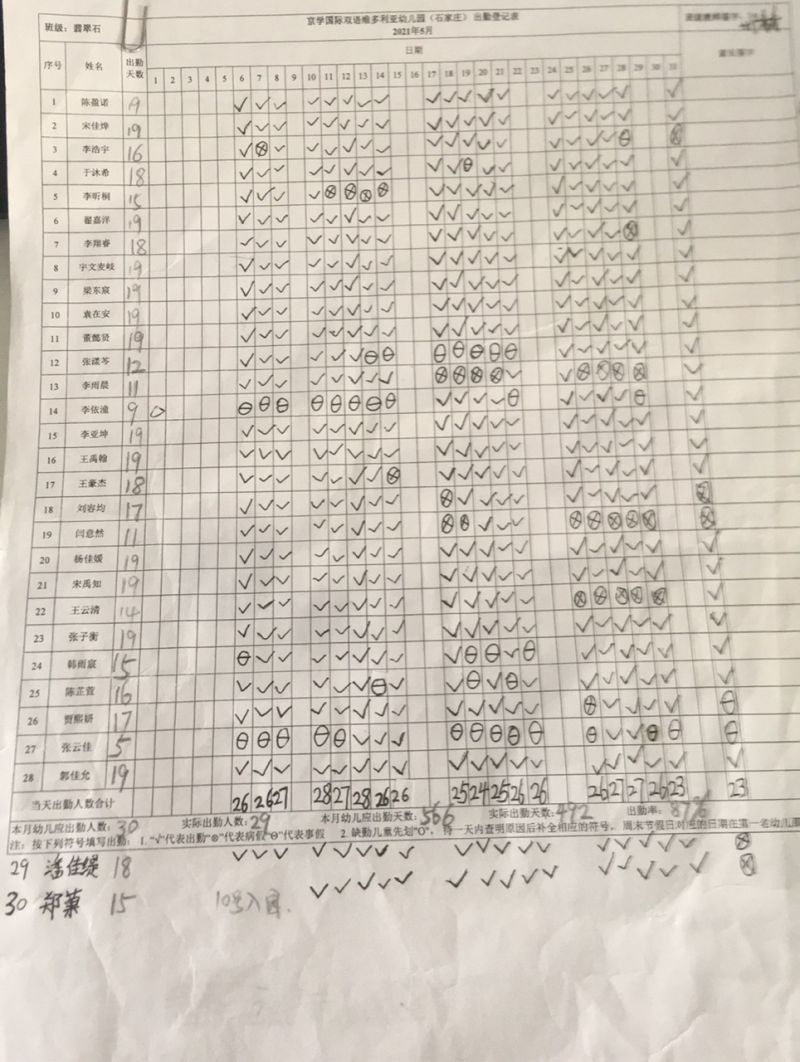 京学国际双语维多利亚幼儿园（石家庄）出勤登记表
班级：翡翠石 2021年5月
序号 姓名 出勤天数 日期
1 2 3 4 5 6 7 8 9 10 11 12 13 14 15 16 17 18 19 20 21 22 23 24 25 26 27 28 29 30 31
1 陈盈诺 19
2 宋佳烨 19
3 李浩宇 16
4 于沐希 18
5 李昕桐 15
6 翟嘉洋 19
7 李翔睿 18
8 宇文麦岐 19
9 梁东宸 19
10 袁在安 19
11 董懿贤 19
12 张漾芩 12
13 李雨晨 11
14 李依潼 9
15 李亚坤 19
16 王禹翰 19
17 王豪杰 18
18 刘容均 17
19 闫意然 11
20 杨佳媛 19
21 宋禹知 19
22 王云清 14
23 张子衡 19
24 韩雨宸 15
25 陈芷萱 16
26 贾熙妍 17
27 张云佳 5
28 郭佳允 19
当天出勤人数合计 26 26 27 28 27 28 26 26 25 24 25 26 26 26 27 27 26 23 23
本月幼儿应出勤人数：30 实际出勤人数：29 本月幼儿应出勤天数：566 实际出勤天数：492 出勤率：87%
注：按下列符号填写出勤：1."√"代表出勤"⊗"代表病假"⊖"代表事假 2.缺勤儿童先划"O"，待一天内查明原因后补全相应的符号，周末节假日对应的日期在第一名幼儿
29 潘佳缇 18
30 郑菓 15 10号入园.